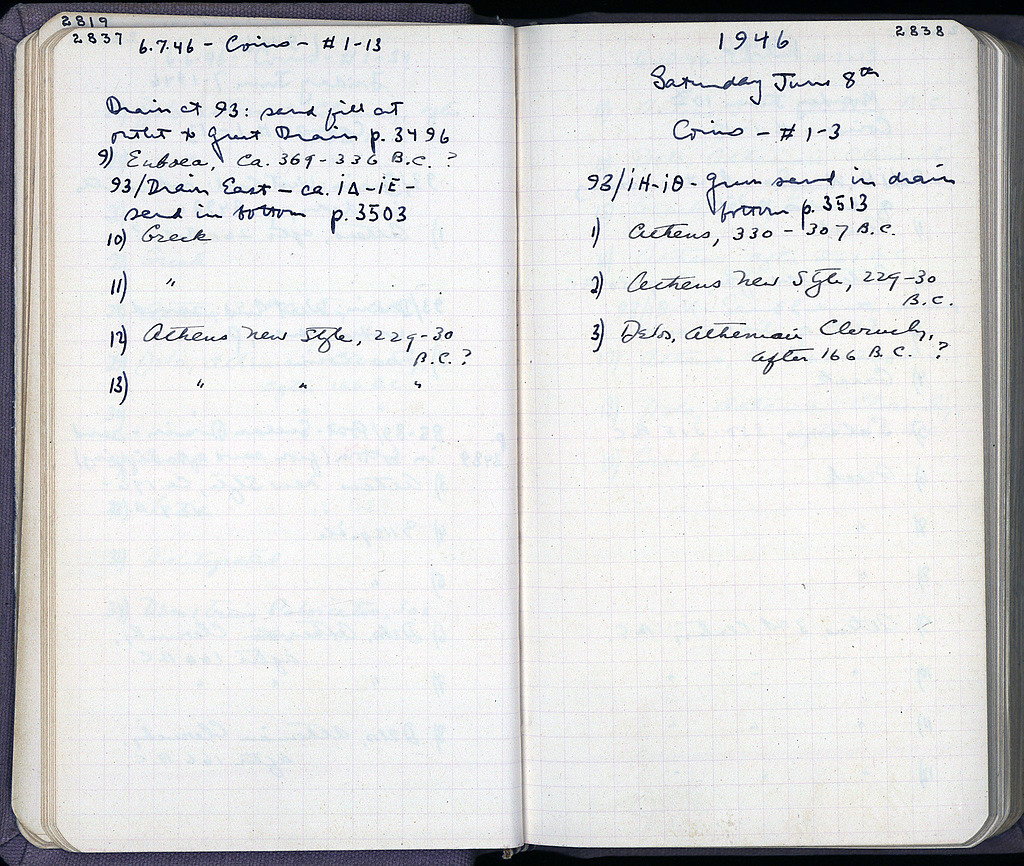 2819
2837
6.7.46 - Coins - #1-13
Drain at 93: sand fill at
outlet to Great Drain p. 3496
9) Euboea, ca. 369-336 B.C. ?
93/Drain East - ca. ΙΔ-ΙΕ-
sand in bottom p. 3503
10) Greek
11) "
12) Athens New Style, 229-30
B.C.?
13) " " "
1946
2838
Saturday June 8th
Coins - #1-3
93/ΙΗ-ΙΘ- Grn sand in drain
bottom p. 3513
1) Athens, 330-307 B.C.
2) Athens New Style, 229-30
B.C.
3) Delos, Athenian Cleruchy,
after 166 B.C. ?